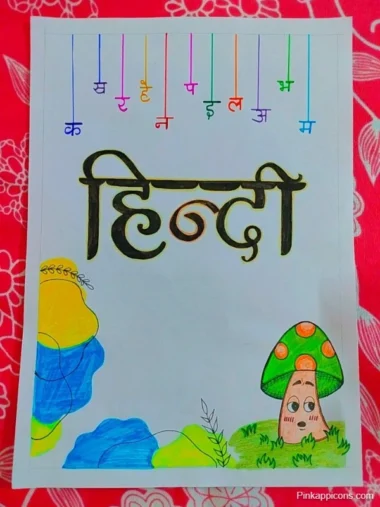 क र न प इ ल अ भ म
हिन्दी
Pinkappicons.com